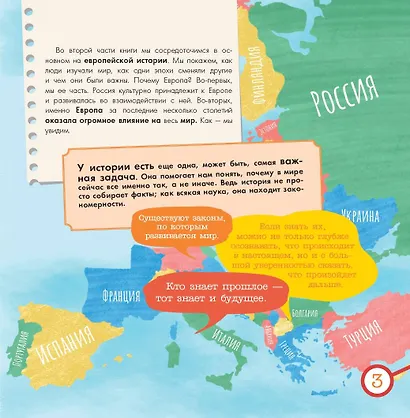 Во второй части книги мы сосредоточимся в ос-
новном на европейской истории. Мы покажем, как
люди изучали мир, как одни эпохи сменяли другие
и чем они были важны. Почему Европа? Во-первых,
мы ее часть. Россия культурно принадлежит к Европе
и развивалась во взаимодействии с ней. Во-вторых,
именно Европа за последние несколько столетий
оказала огромное влияние на весь мир. Как — мы
увидим.
ФИНЛЯНДИЯ
РОССИЯ
ЭСТОНИЯ
У истории есть еще одна, может быть, самая важ-
ная задача. Она помогает нам понять, почему в мире
сейчас все именно так, а не иначе. Ведь история не про-
сто собирает факты; как всякая наука, она находит зако-
номерности.
УКРАИНА
Существуют законы,
по которым
развивается мир.
Если знать их,
можно не только глубже
осознавать, что происходит
в настоящем, но и с боль-
шой уверенностью сказать,
что произойдет
дальше.
Кто знает прошлое —
тот знает и будущее.
ФРАНЦИЯ
БОЛГАРИЯ
ПОРТУГАЛИЯ
ИСПАНИЯ
ИТАЛИЯ
ГРЕЦИЯ
ТУРЦИЯ
3